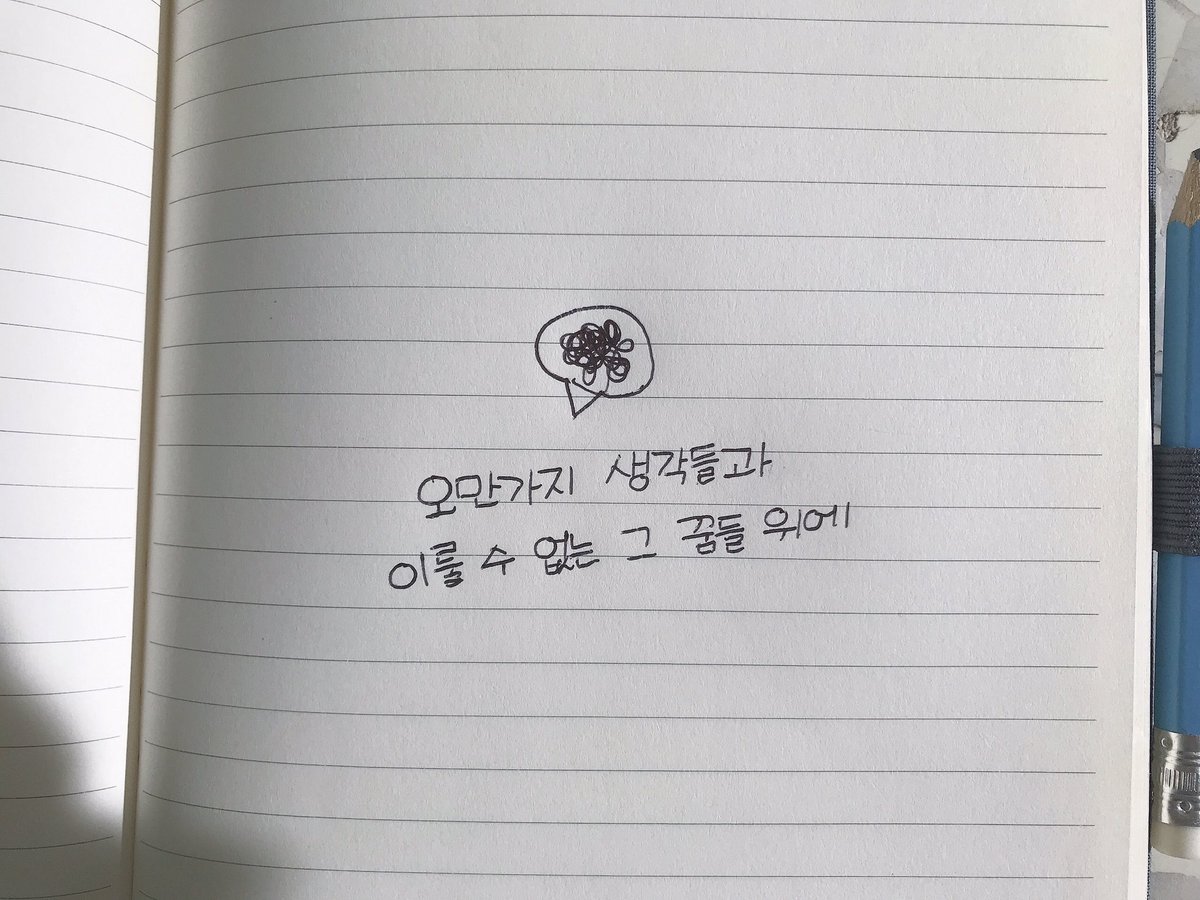 오만가지 생각들과
이룰 수 없는 그 꿈들 위에